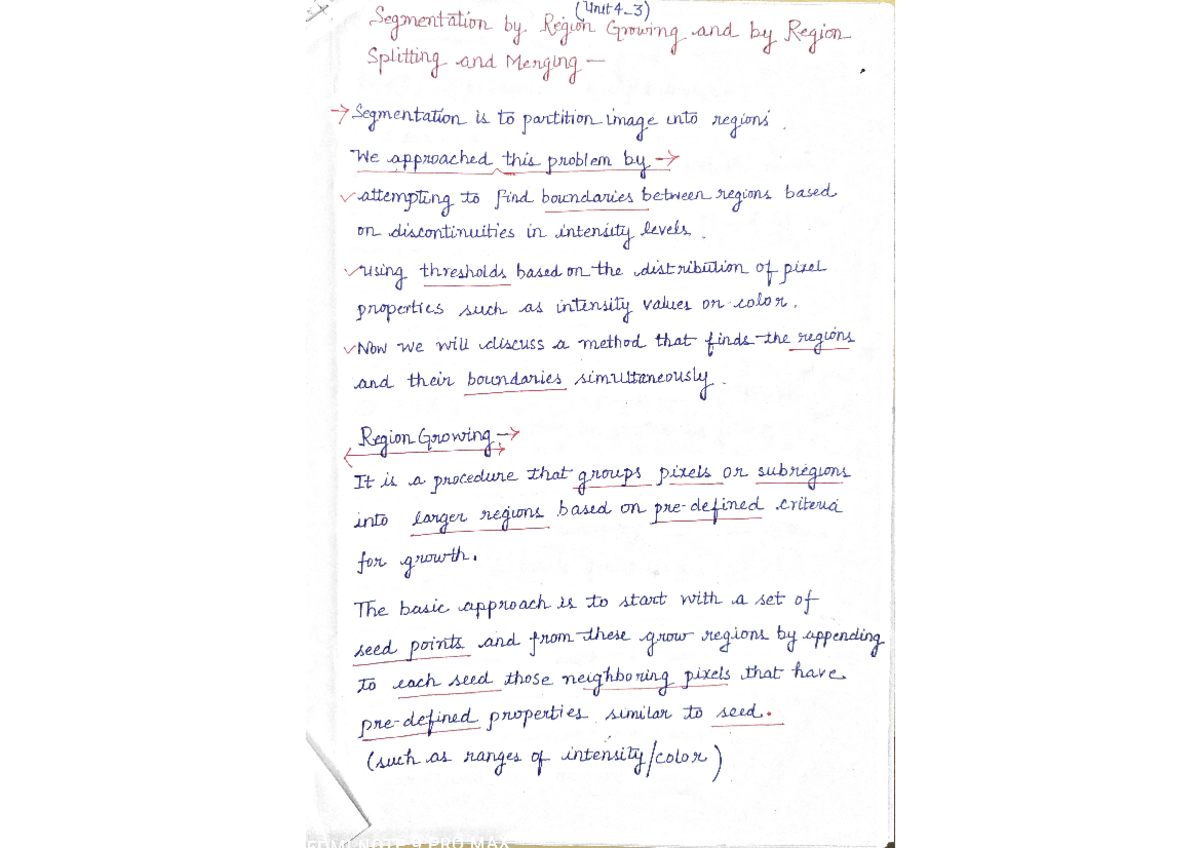 (Unit 4_3)
Segmentation by Region Growing and by Region
Splitting and Merging —
→ Segmentation is to partition image into regions.
We approached this problem by →
✓ attempting to find boundaries between regions based
on discontinuities in intensity levels.
✓ using thresholds based on the distribution of pixel
properties such as intensity values or color.
✓ Now we will discuss a method that finds the regions
and their boundaries simultaneously.
Region Growing →
It is a procedure that groups pixels or subregions
into larger regions based on pre-defined criteria
for growth.
The basic approach is to start with a set of
seed points and from these grow regions by appending
to each seed those neighboring pixels that have
pre-defined properties similar to seed.
(such as ranges of intensity/color)
EDMI NOTE 9 PRO MAX